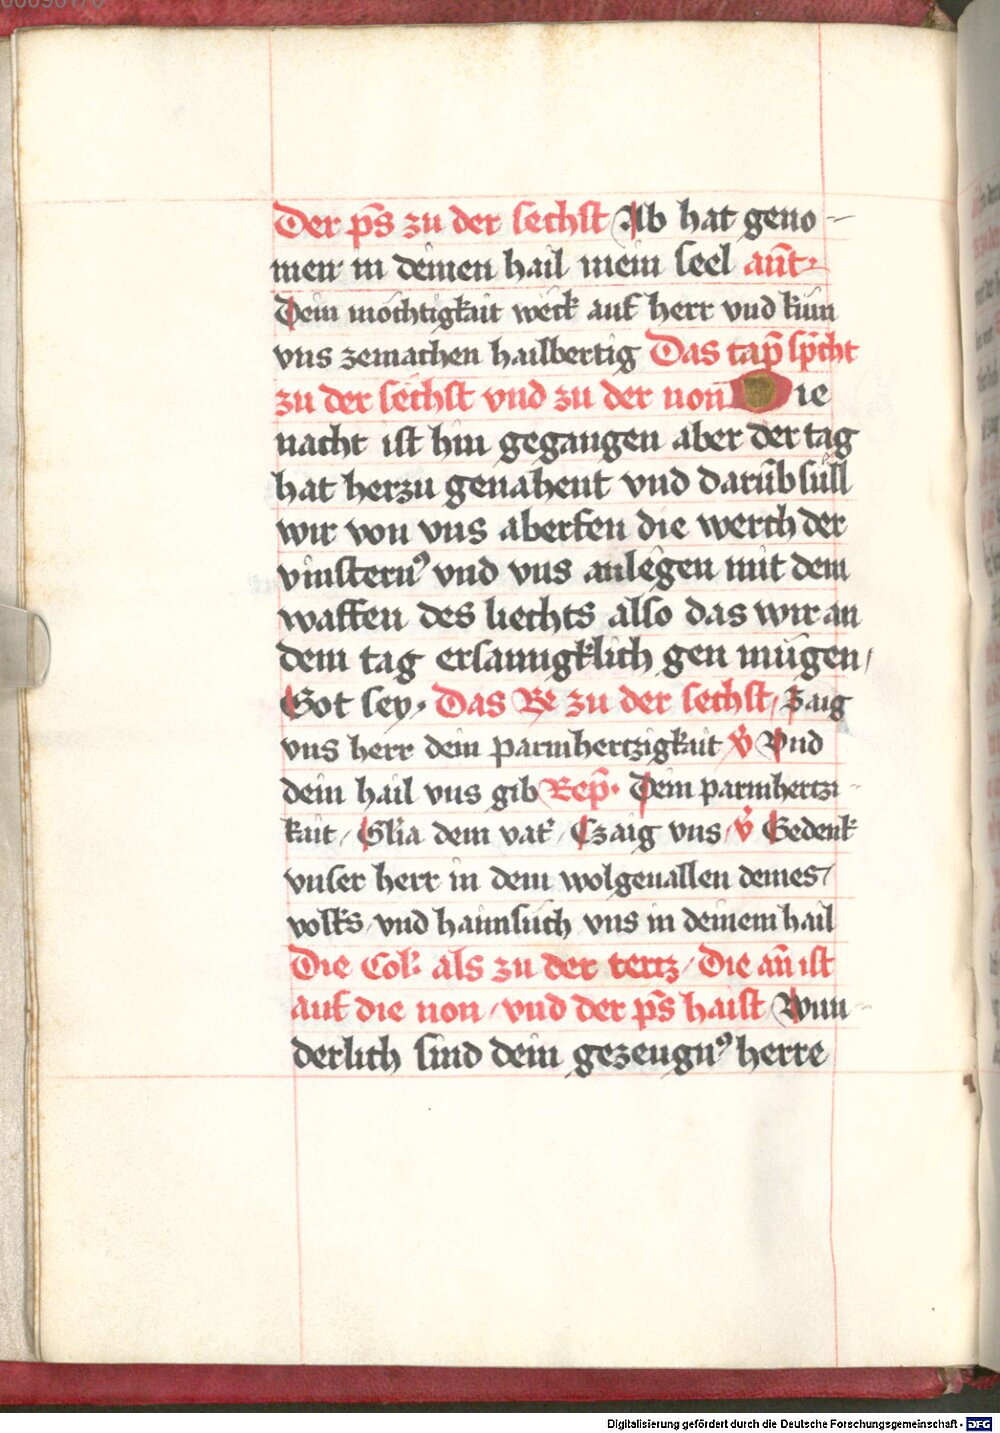 Der ps̄ zu der sechst Ab hat geno-
men in deinen hail mein seel an̄t
Dein mochtigkait weck auf herr vnd kum
vns zemachen hailbertig Das cap̄ sp̄cht
zu der sechst vnd zu der non Die
nacht ist hin gegangen aber der tag
hat herzu genahent vnd darūb sull
wir von vns aberfen die werch der
vinstern⁹ vnd vns anlegen mit dem
waffen des liechts also das wir an
dem tag ersamigklich gen mugen/
Got sey· Das Re zu der sechst/ Zaig
vns herr dein parmhertzigkait v̄ Vnd
dein hail vns gib Rep̄· Dein parmhertzi-
kait/ Gl̄ia dem vat̄/ Czaig vns/ v̄ Gedenk
vnser herr in dem wolgeuallen deines/
volks/ vnd haimsuch vns in deinem hail
Die Col: als zu der tertz/ Die an̄ ist
auf die non/ vnd der ps̄ haist Wun-
derlich sind dein gezeugn⁹ herre
Digitalisierung gefördert durch die Deutsche Forschungsgemeinschaft - DFG